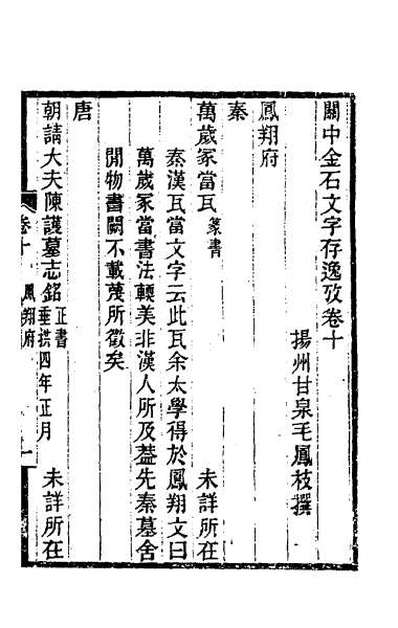 關中金石文字存逸攷卷十
揚州甘泉毛鳳枝撰
鳳翔府
秦
萬歲冢當瓦篆書 未詳所在
秦漢瓦當文字云此瓦余太學得於鳳翔文曰
萬歲冢當書法轉美非漢人所及葢先秦墓舍
閒物書闕不載蔑所徵矣
唐
朝請大夫陳護墓志銘正書垂拱四年正月 未詳所在
卷十 鳳翔府 一